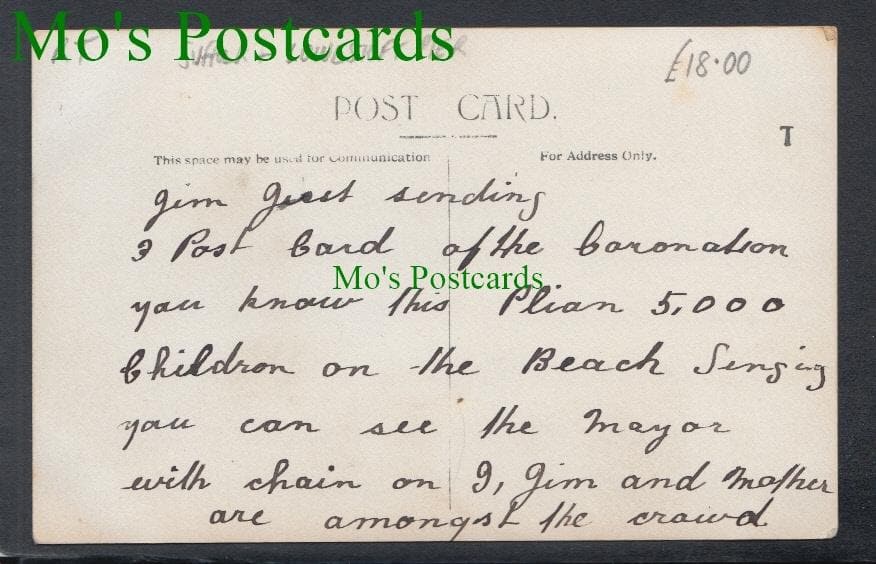 Mo's Postcards
£18.00
POST CARD.
T
This space may be used for Communication
For Address Only.
Jim Just sending
3 Post Card of the Coronation
Mo's Postcards
you know this Plian 5,000
Children on the Beach Singing
you can see the Mayor
with chain on I, Jim and Mother
are amongst the crowd